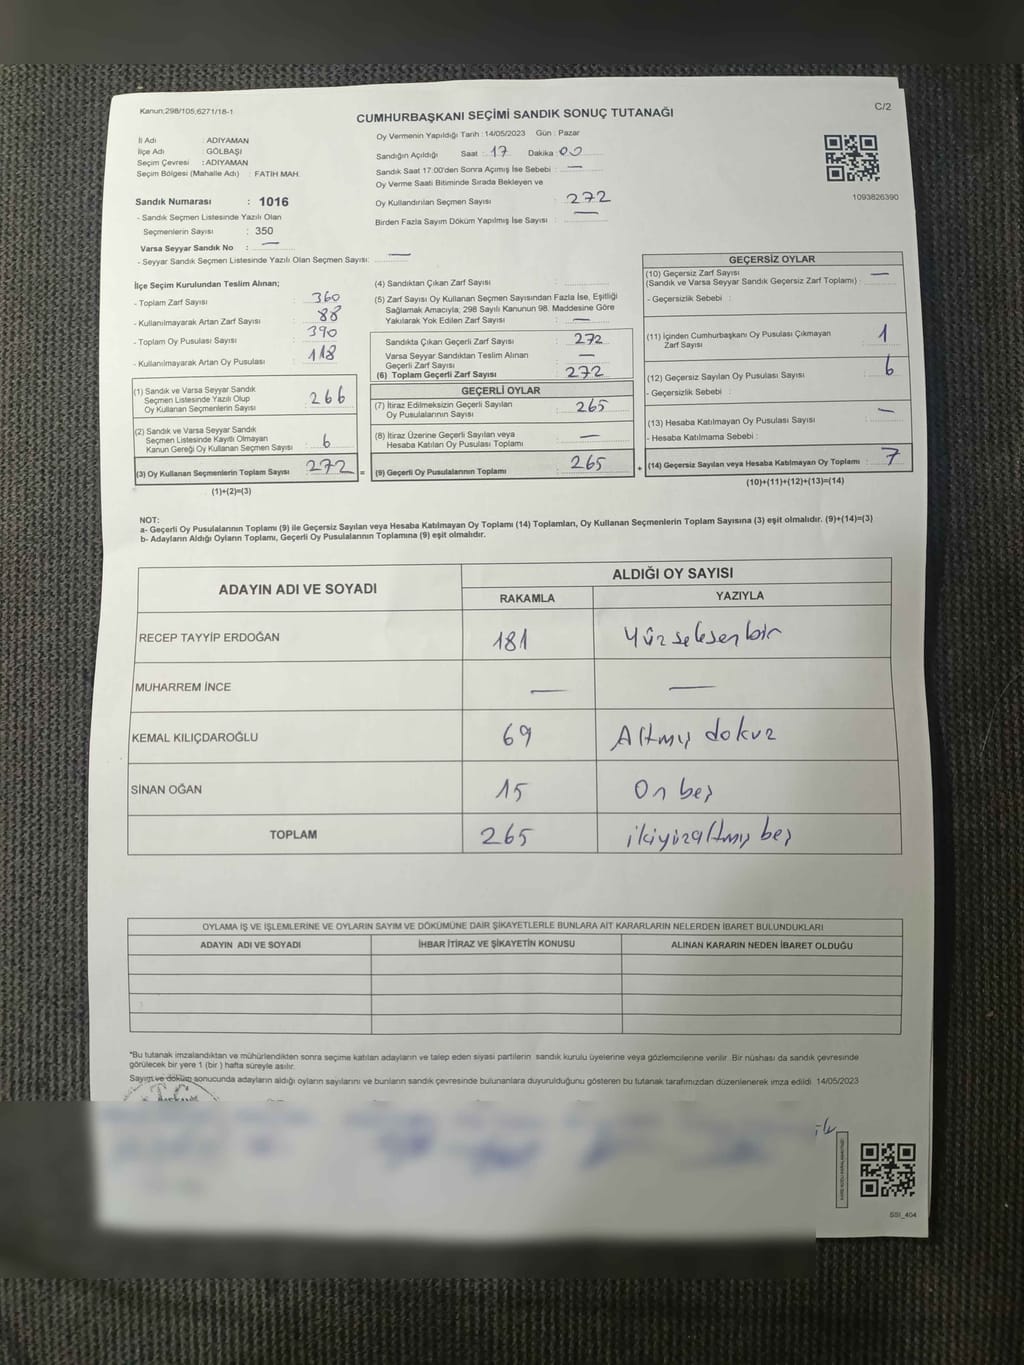 Kanun;298/105,6271/18-1
C/2
CUMHURBAŞKANI SEÇİMİ SANDIK SONUÇ TUTANAĞI
İl Adı : ADIYAMAN
İlçe Adı : GÖLBAŞI
Seçim Çevresi : ADIYAMAN
Seçim Bölgesi (Mahalle Adı) : FATİH MAH.
Sandık Numarası : 1016
- Sandık Seçmen Listesinde Yazılı Olan
Seçmenlerin Sayısı : 350
Varsa Seyyar Sandık No : —
- Seyyar Sandık Seçmen Listesinde Yazılı Olan Seçmen Sayısı: —
Oy Vermenin Yapıldığı Tarih : 14/05/2023 Gün : Pazar
Sandığın Açıldığı Saat : 17 Dakika : 00
Sandık Saat 17:00'den Sonra Açımış İse Sebebi : —
Oy Verme Saati Bitiminde Sırada Bekleyen ve
Oy Kullandırılan Seçmen Sayısı : 272
Birden Fazla Sayım Döküm Yapılmış İse Sayısı : —
1093826390
İlçe Seçim Kurulundan Teslim Alınan;
- Toplam Zarf Sayısı : 360
- Kullanılmayarak Artan Zarf Sayısı : 88
- Toplam Oy Pusulası Sayısı : 390
- Kullanılmayarak Artan Oy Pusulası : 118
(1) Sandık ve Varsa Seyyar Sandık
Seçmen Listesinde Yazılı Olup
Oy Kullanan Seçmenlerin Sayısı : 266
(2) Sandık ve Varsa Seyyar Sandık
Seçmen Listesinde Kayıtlı Olmayan
Kanun Gereği Oy Kullanan Seçmen Sayısı : 6
(3) Oy Kullanan Seçmenlerin Toplam Sayısı : 272 =
(1)+(2)=(3)
(4) Sandıktan Çıkan Zarf Sayısı :
(5) Zarf Sayısı Oy Kullanan Seçmen Sayısından Fazla İse, Eşitliği
Sağlamak Amacıyla; 298 Sayılı Kanunun 98. Maddesine Göre
Yakılarak Yok Edilen Zarf Sayısı : —
Sandıkta Çıkan Geçerli Zarf Sayısı : 272
Varsa Seyyar Sandıktan Teslim Alınan
Geçerli Zarf Sayısı : —
(6) Toplam Geçerli Zarf Sayısı : 272
GEÇERLİ OYLAR
(7) İtiraz Edilmeksizin Geçerli Sayılan
Oy Pusulalarının Sayısı : 265
(8) İtiraz Üzerine Geçerli Sayılan veya
Hesaba Katılan Oy Pusulası Toplamı : —
(9) Geçerli Oy Pusulalarının Toplamı : 265 +
GEÇERSİZ OYLAR
(10) Geçersiz Zarf Sayısı
(Sandık ve Varsa Seyyar Sandık Geçersiz Zarf Toplamı) : —
- Geçersizlik Sebebi :
(11) İçinden Cumhurbaşkanı Oy Pusulası Çıkmayan
Zarf Sayısı : 1
(12) Geçersiz Sayılan Oy Pusulası Sayısı : 6
- Geçersizlik Sebebi :
(13) Hesaba Katılmayan Oy Pusulası Sayısı : —
- Hesaba Katılmama Sebebi :
(14) Geçersiz Sayılan veya Hesaba Katılmayan Oy Toplamı : 7
(10)+(11)+(12)+(13)=(14)
NOT:
a- Geçerli Oy Pusulalarının Toplamı (9) ile Geçersiz Sayılan veya Hesaba Katılmayan Oy Toplamı (14) Toplamları, Oy Kullanan Seçmenlerin Toplam Sayısına (3) eşit olmalıdır. (9)+(14)=(3)
b- Adayların Aldığı Oyların Toplamı, Geçerli Oy Pusulalarının Toplamına (9) eşit olmalıdır.
ADAYIN ADI VE SOYADI ALDIĞI OY SAYISI
RAKAMLA YAZIYLA
RECEP TAYYİP ERDOĞAN 181 Yüz seksen bir
MUHARREM İNCE — —
KEMAL KILIÇDAROĞLU 69 Altmış dokuz
SİNAN OĞAN 15 On beş
TOPLAM 265 ikiyüzaltmış beş
OYLAMA İŞ VE İŞLEMLERİNE VE OYLARIN SAYIM VE DÖKÜMÜNE DAİR ŞİKAYETLERLE BUNLARA AİT KARARLARIN NELERDEN İBARET BULUNDUKLARI
ADAYIN ADI VE SOYADI İHBAR İTİRAZ VE ŞİKAYETİN KONUSU ALINAN KARARIN NEDEN İBARET OLDUĞU
*Bu tutanak imzalandıktan ve mühürlendikten sonra seçime katılan adayların ve talep eden siyasi partilerin sandık kurulu üyelerine veya gözlemcilerine verilir. Bir nüshası da sandık çevresinde
görülecek bir yere 1 (bir) hafta süreyle asılır.
Sayım ve döküm sonucunda adayların aldığı oyların sayılarını ve bunların sandık çevresinde bulunanlara duyurulduğunu gösteren bu tutanak tarafımızdan düzenlenerek imza edildi. 14/05/2023
SSI_404